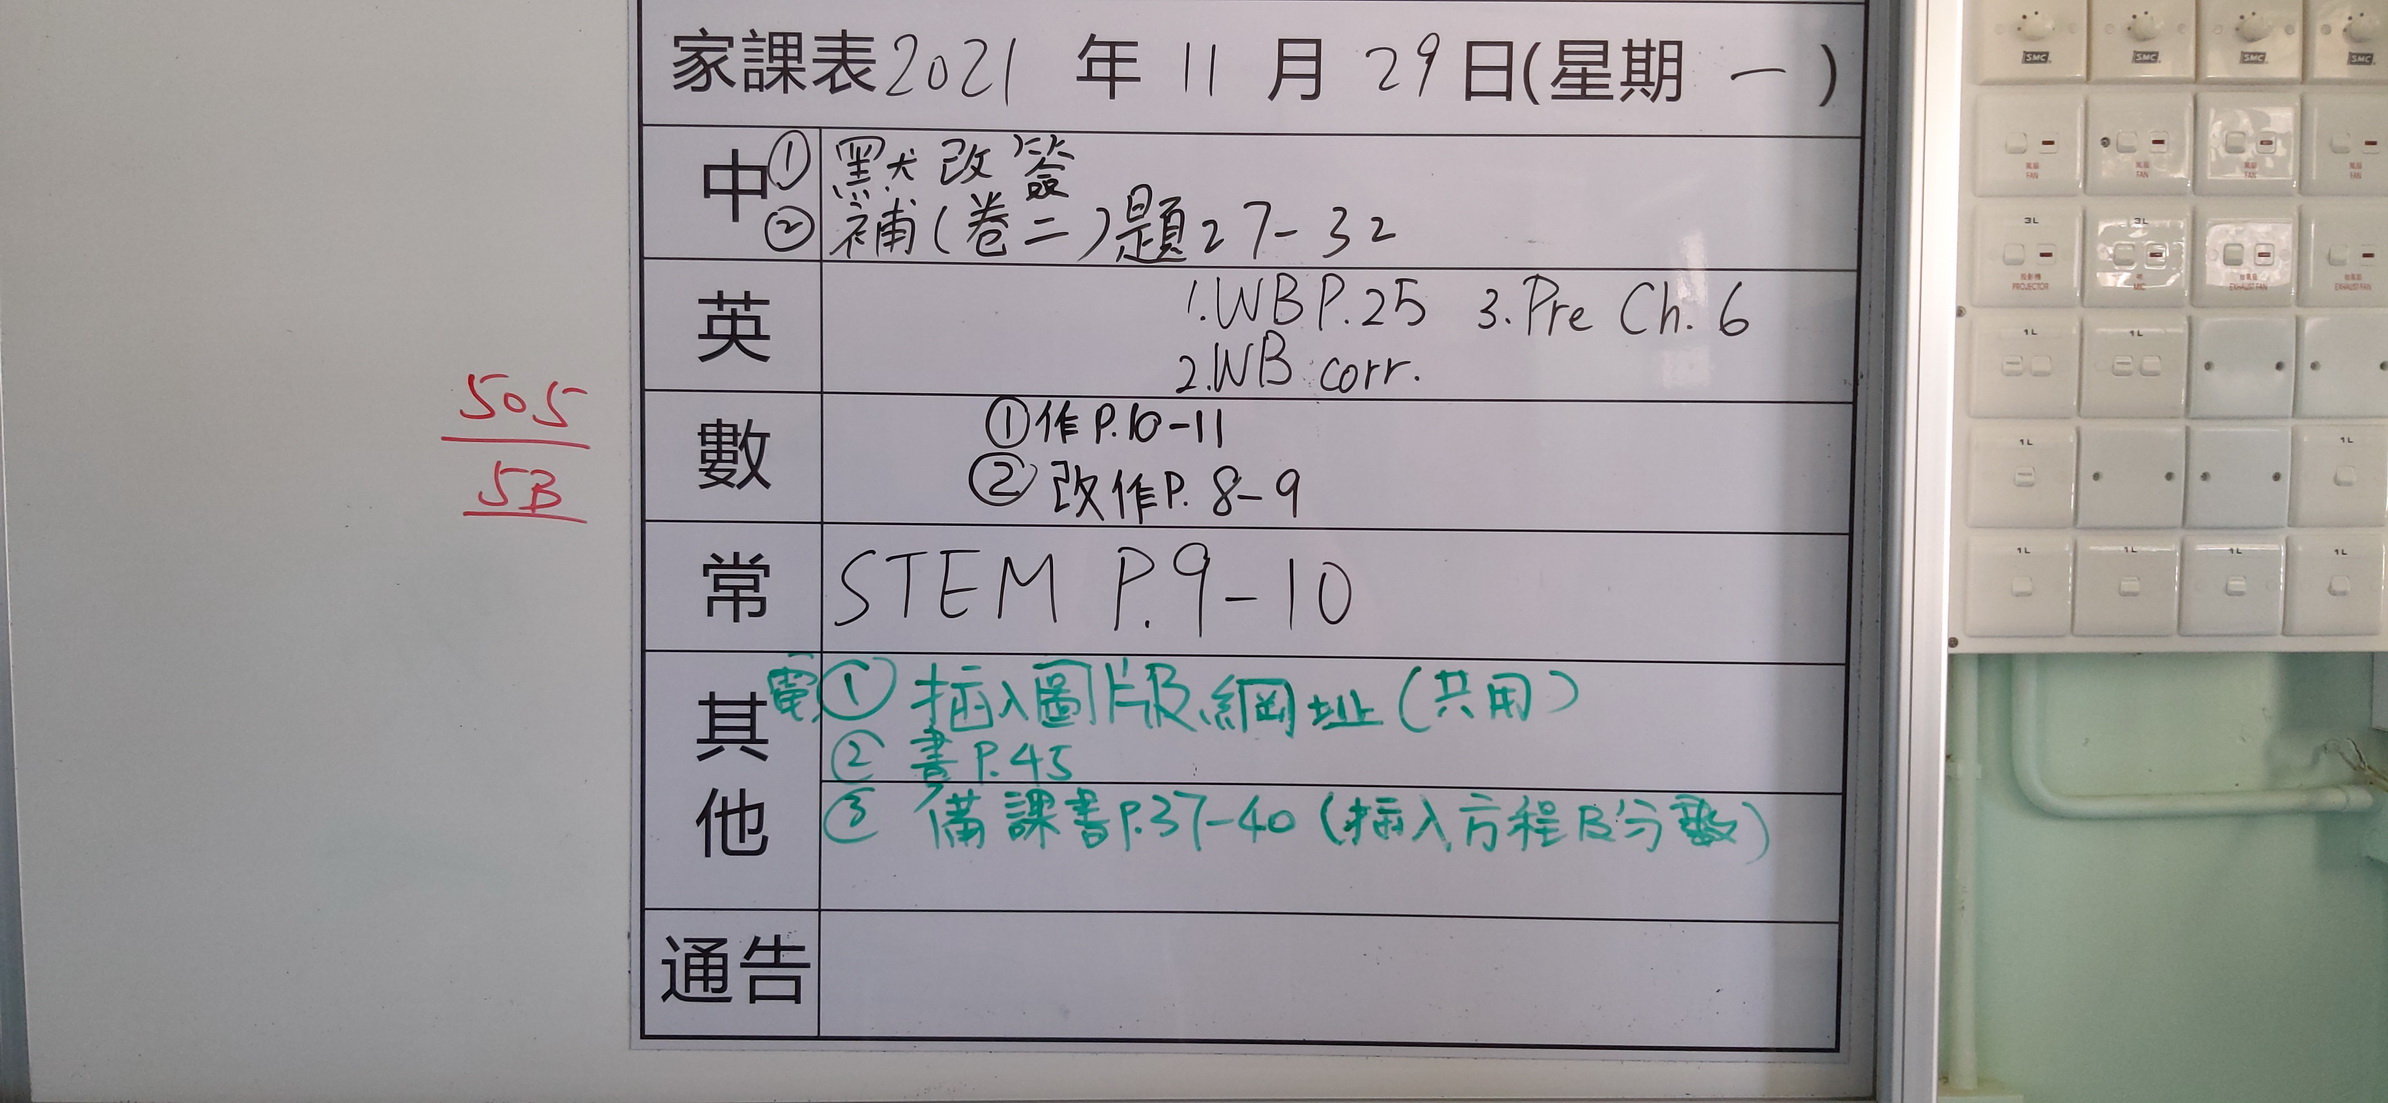 家課表2021 年 11 月 29 日(星期 一 )
中 ① 默改簽
② 補(卷二)題27-32
英 1.WB P.25 3.Pre Ch. 6
2.WB corr.
數 ①作P.10-11
② 改作P. 8-9
常 STEM P.9-10
其他 電 ① 插入圖片及網址(共用)
② 書P.45
③ 備課書P.37-40(插入方程及分數)
通告
505
5B
SMC SMC SMC SMC
風扇 FAN 風扇 FAN 風扇 FAN 風扇 FAN
3L 3L
投影機 PROJECTOR MIC 抽氣扇 EXHAUST FAN 抽氣扇 EXHAUST FAN
1L 1L
1L 1L
1L 1L 1L 1L